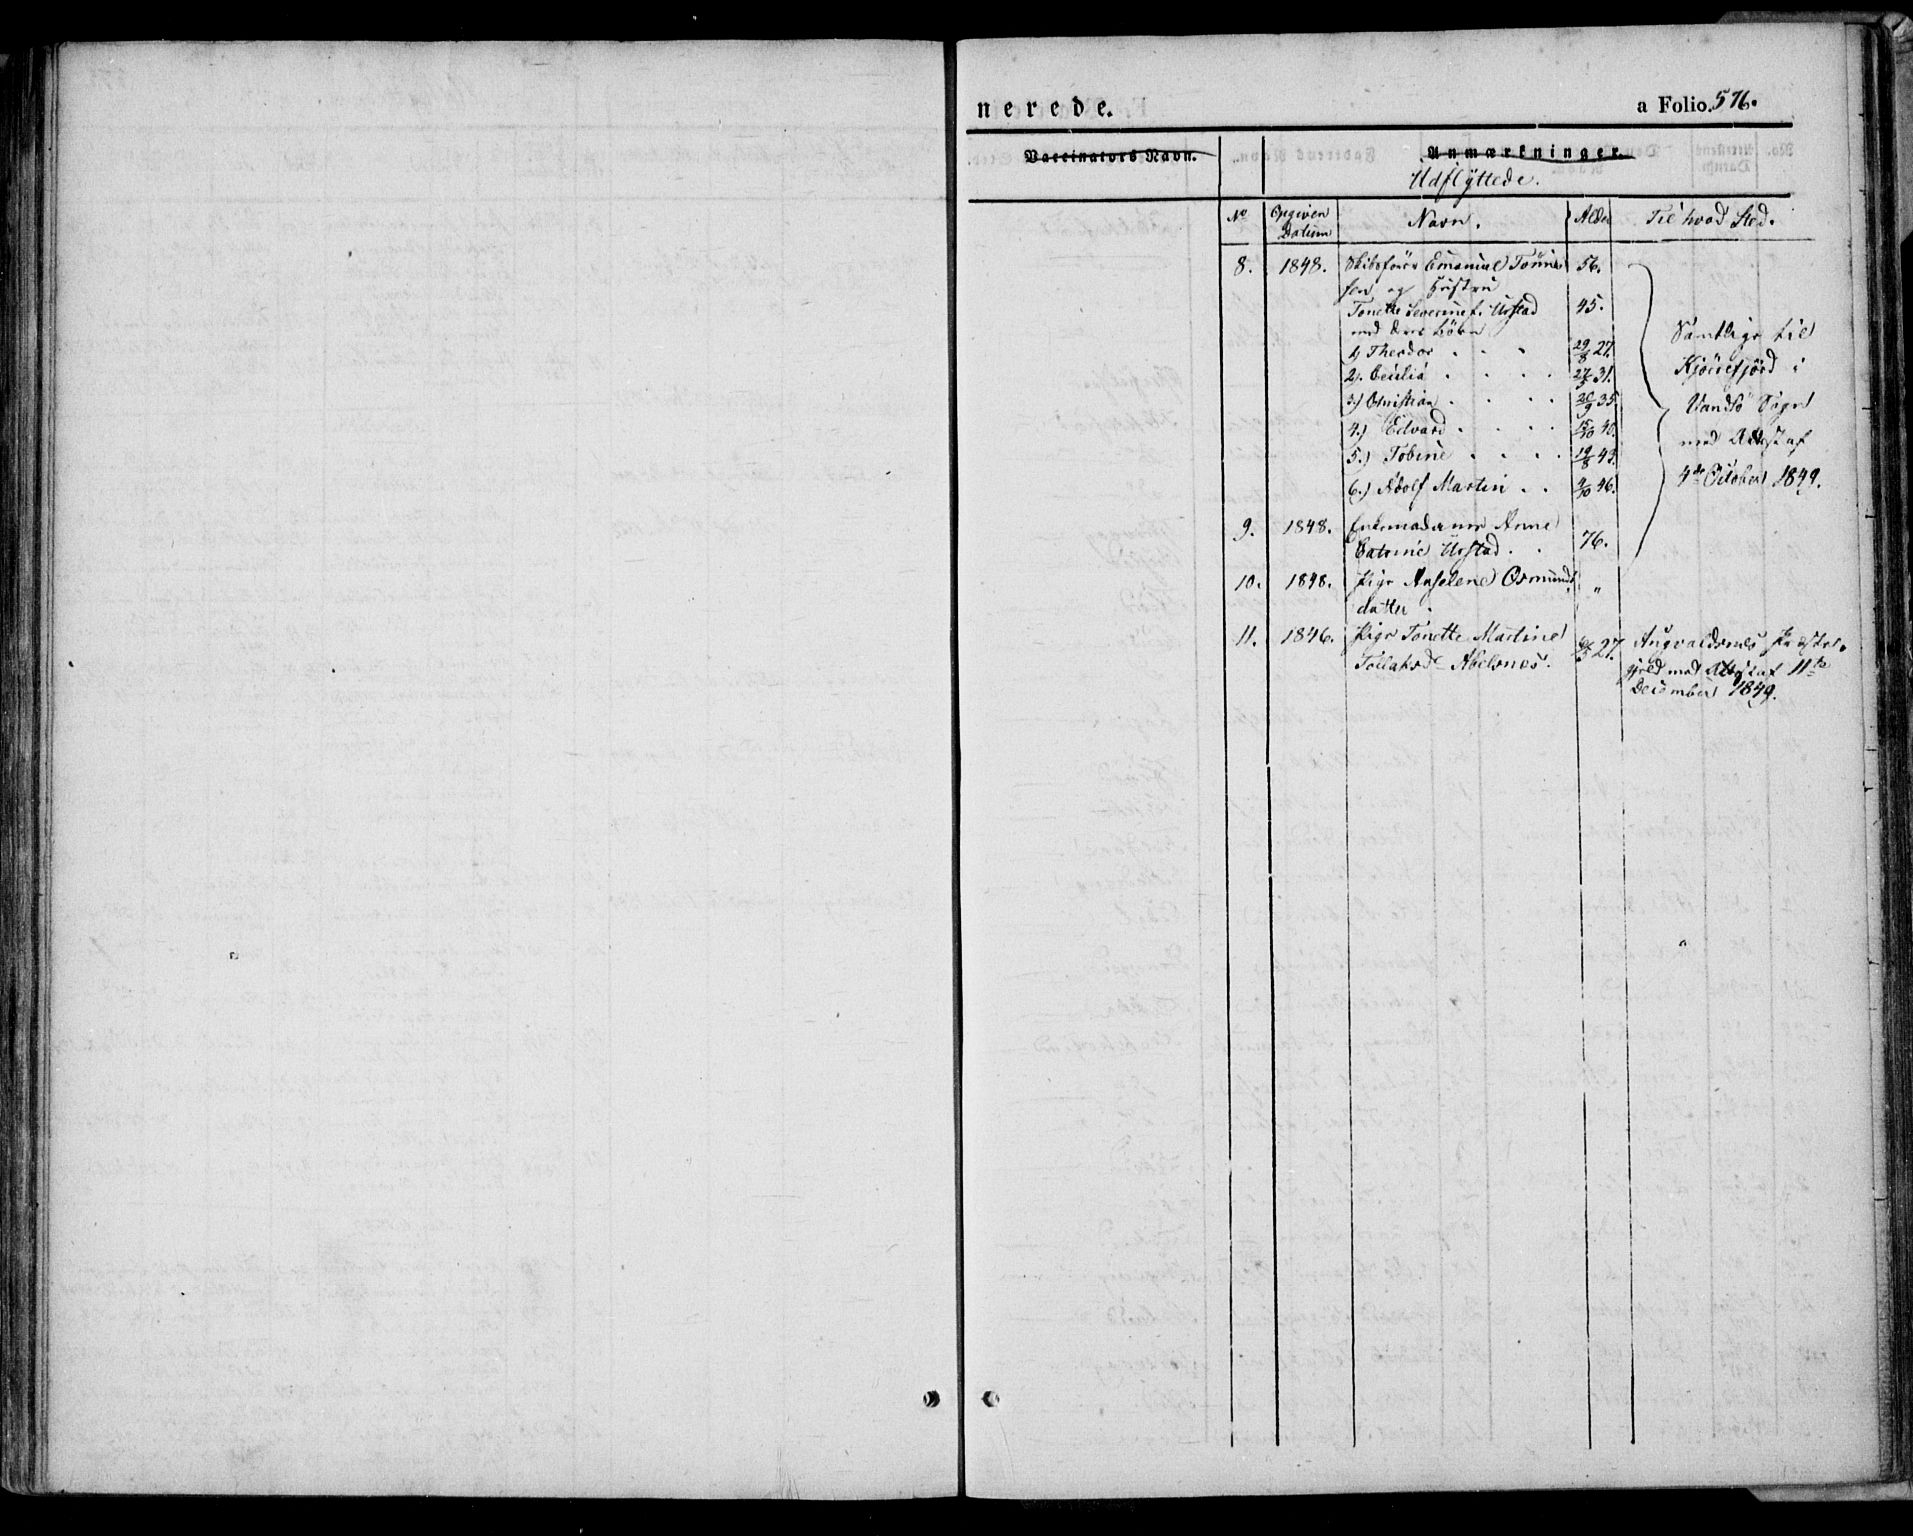 nerede. a Folio. 576.
Vaccinators Navn. Anmærkninger.
Udflyttede.
No Opgiven Datum Navn. Alder Til hvad Sted.
8. 1848. Skibsfører Emanuel Tønne- 56.
sen og Hustru
Tonette Severine f. Urstad 45.
med deres børn
1) Theodor . . . 29/8 27.
2) Cecilia . . . . 27/5 31.
3.) Christian . . . . 26/9 35.
4.) Edvard . . . . 15/10 40.
5.) Tobine . . . . 19/8 43.
6.) Adolf Martin . . 9/10 46.
Samtlige til
i
Vandsö Sogn
med Attest af
4de October 1849.
9. 1848. Anne
Catrine Urstad . . 76.
10. 1848. Pige Anselene Osmunds "
datter .
11. 1846. Pige Tonette Martine 27.
Tollaksd. Abelsnes.
Augvaldsnes Præste-
gjeld med Attest af 11te
December 1849.